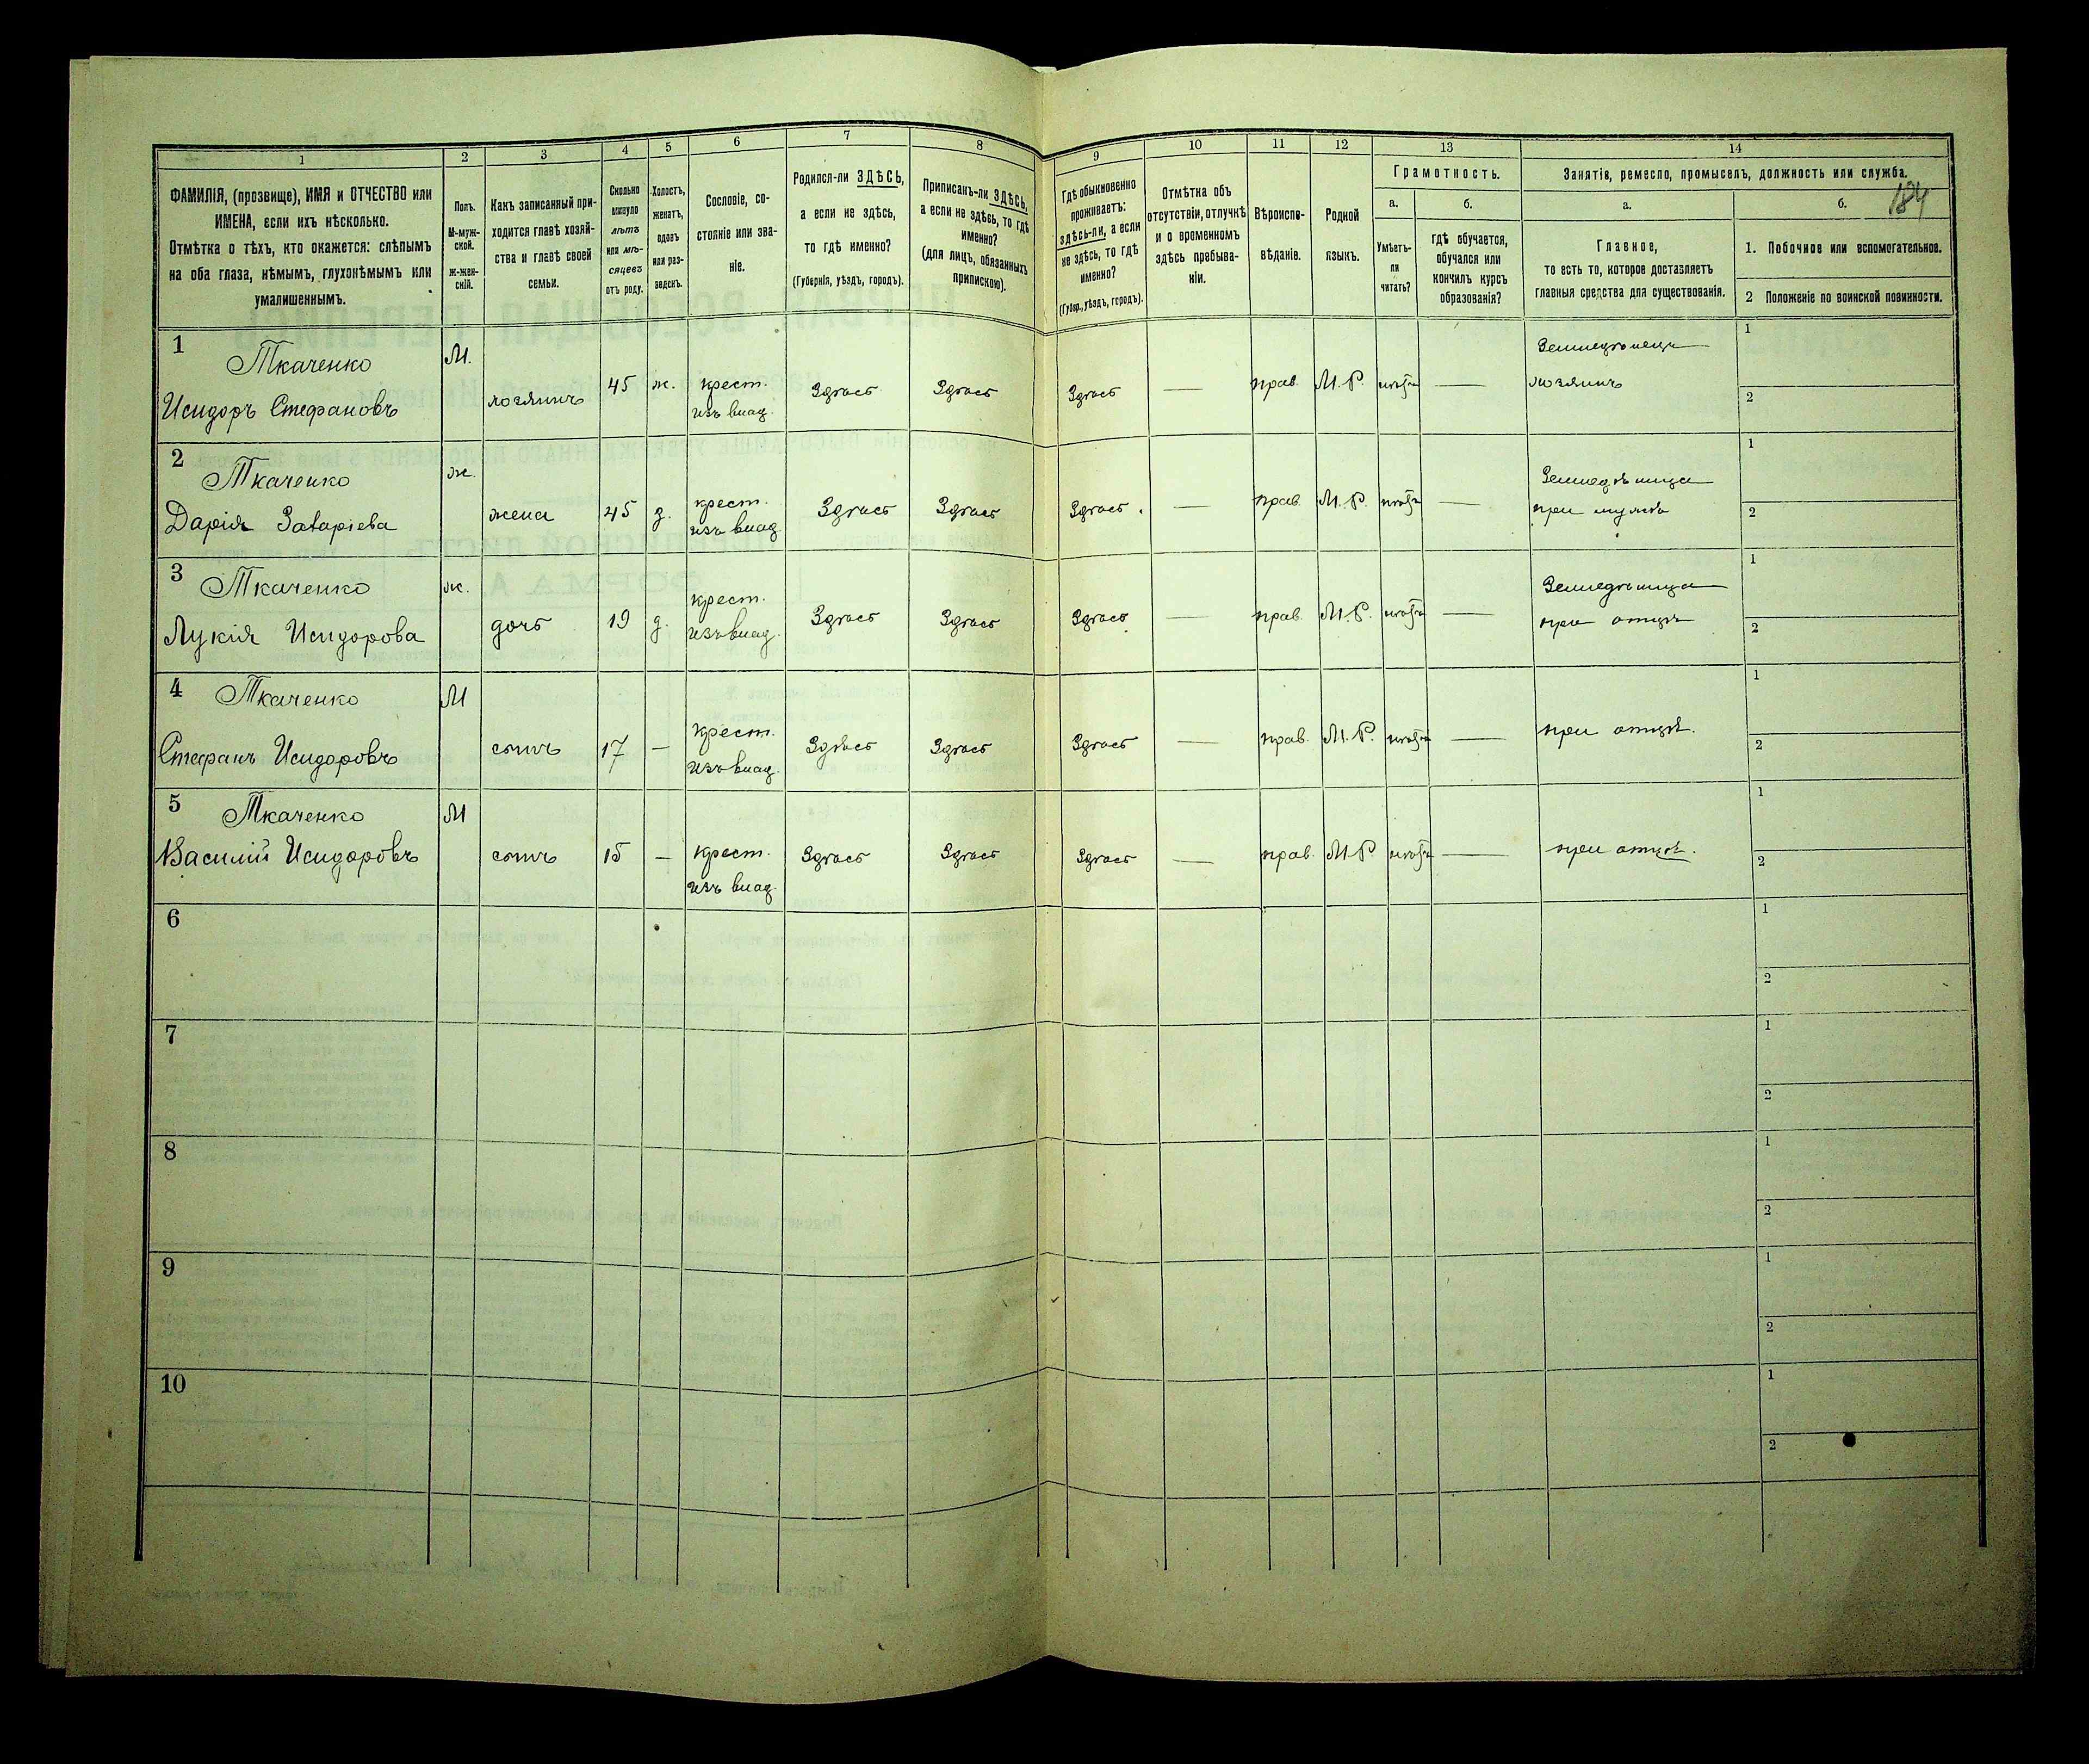 1
2
3
4
5
6
7
8
9
10
11
12
13
14
ФАМИЛІЯ, (прозвище), ИМЯ и ОТЧЕСТВО или
ИМЕНА, если ихъ нѣсколько.
Отмѣтка о тѣхъ, кто окажется: слѣпымъ
на оба глаза, нѣмымъ, глухонѣмымъ или
умалишеннымъ.
Полъ.
М-муж-
ской.
ж-жен-
скій.
Какъ записанный при-
ходится главѣ хозяй-
ства и главѣ своей
семьи.
Сколько
минуло
лѣтъ
или мѣ-
сяцевъ
отъ роду.
Холостъ,
женатъ,
вдовъ
или раз-
веденъ.
Сословіе, со-
стояніе или зва-
ніе.
Родился-ли ЗДѢСЬ,
а если не здѣсь,
то гдѣ именно?
(Губернія, уѣздъ, городъ).
Приписанъ-ли ЗДѢСЬ,
а если не здѣсь, то гдѣ
именно?
(для лицъ, обязанныхъ
припискою).
Гдѣ обыкновенно
проживаетъ:
здѣсь-ли, а если
не здѣсь, то гдѣ
именно?
(Губер., уѣздъ, городъ).
Отмѣтка объ
отсутствіи, отлучкѣ
и о временномъ
здѣсь пребыва-
ніи.
Вѣроиспо-
вѣданіе.
Родной
языкъ.
Грамотность.
а.
Умѣетъ-
ли
читать?
б.
гдѣ обучается,
обучался или
кончилъ курсъ
образованія?
Занятіе, ремесло, промыселъ, должность или служба.
184
а.
Главное,
то есть то, которое доставляетъ
главныя средства для существованія.
б.
1. Побочное или вспомогательное.
2 Положеніе по воинской повинности.
1
Ткаченко
Исидоръ Стефановъ
М.
хозяинъ
45
ж.
крест.
изъ влад.
Здѣсь
Здѣсь
Здѣсь
—
прав.
М.Р.
нѣтъ
—
Земледѣлецъ
хозяинъ
1
2
2
Ткаченко
Дарія Захаріева
ж.
жена
45
з.
крест.
изъ влад
Здѣсь
Здѣсь
Здѣсь.
—
прав.
М.Р.
нѣтъ
—
Земледѣлица
при мужѣ
1
2
3
Ткаченко
Лукія Исидорова
ж.
дочь
19
д.
крест.
изъ влад.
Здѣсь
Здѣсь
Здѣсь
—
прав.
М.Р.
нѣтъ
—
Земледѣлица
при отцѣ
1
2
4
Ткаченко
Стефанъ Исидоровъ
М
сынъ
17
—
крест.
изъ влад.
Здѣсь
Здѣсь
Здѣсь
—
прав.
М.Р.
нѣтъ
—
при отцѣ.
1
2
5
Ткаченко
Василій Исидоровъ
М
сынъ
15
—
крест.
изъ влад.
Здѣсь
Здѣсь
Здѣсь
—
прав.
М.Р.
нѣтъ
—
при отцѣ.
1
2
6
1
2
7
1
2
8
1
2
9
1
2
10
1
2